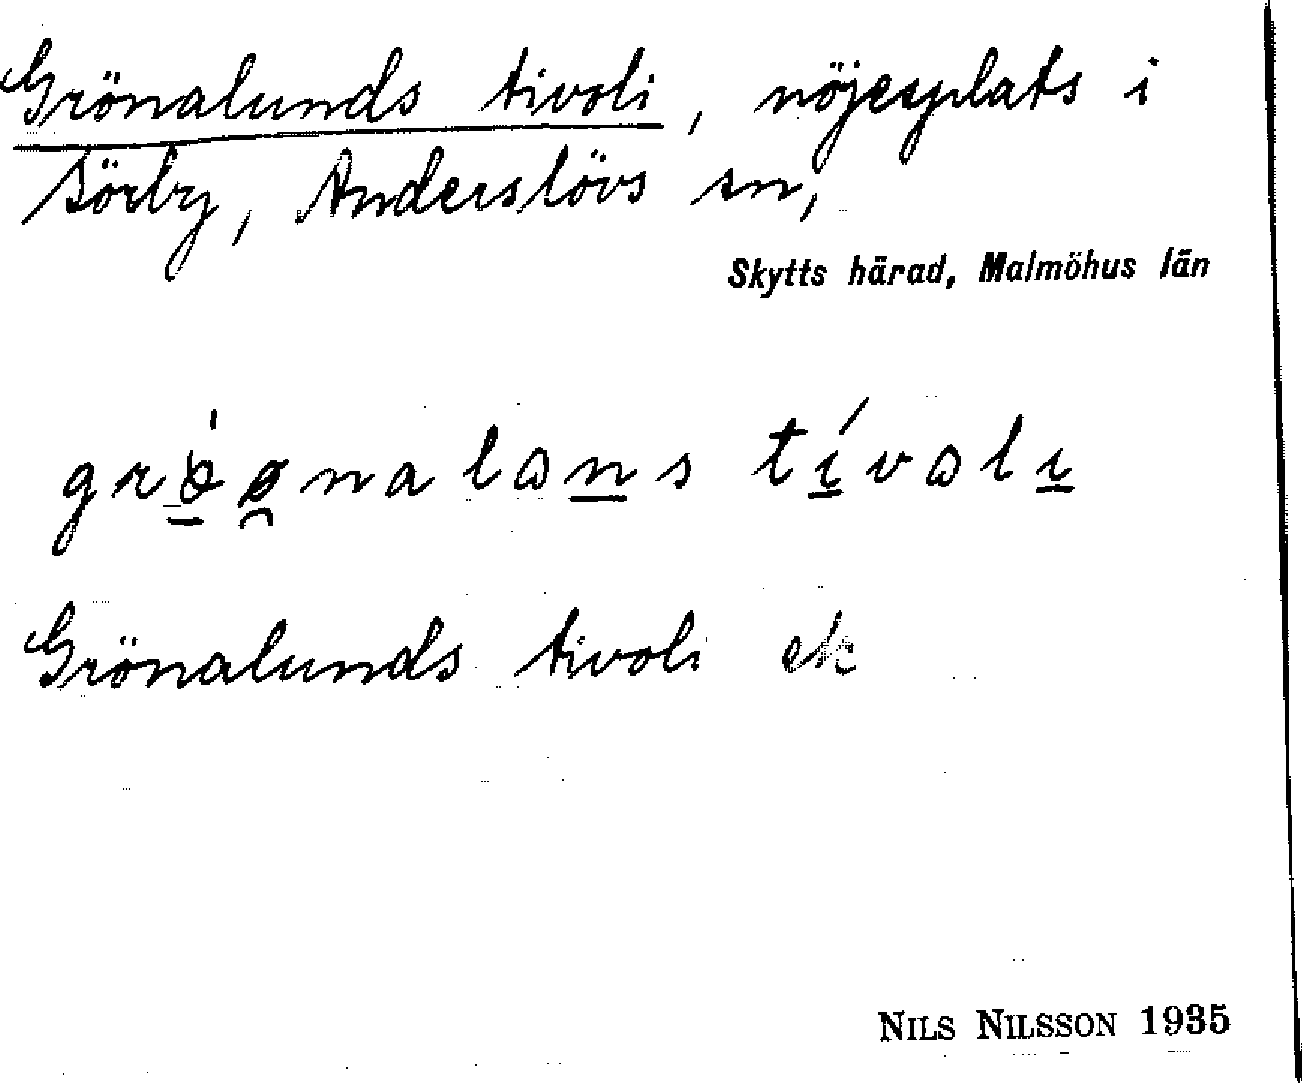 Grönalunds tivoli, nöjesplats i
Sörby, Anderslövs sn,
Skytts härad, Malmöhus län
tívoli
Grönalunds tivoli ek
NILS NILSSON 1935